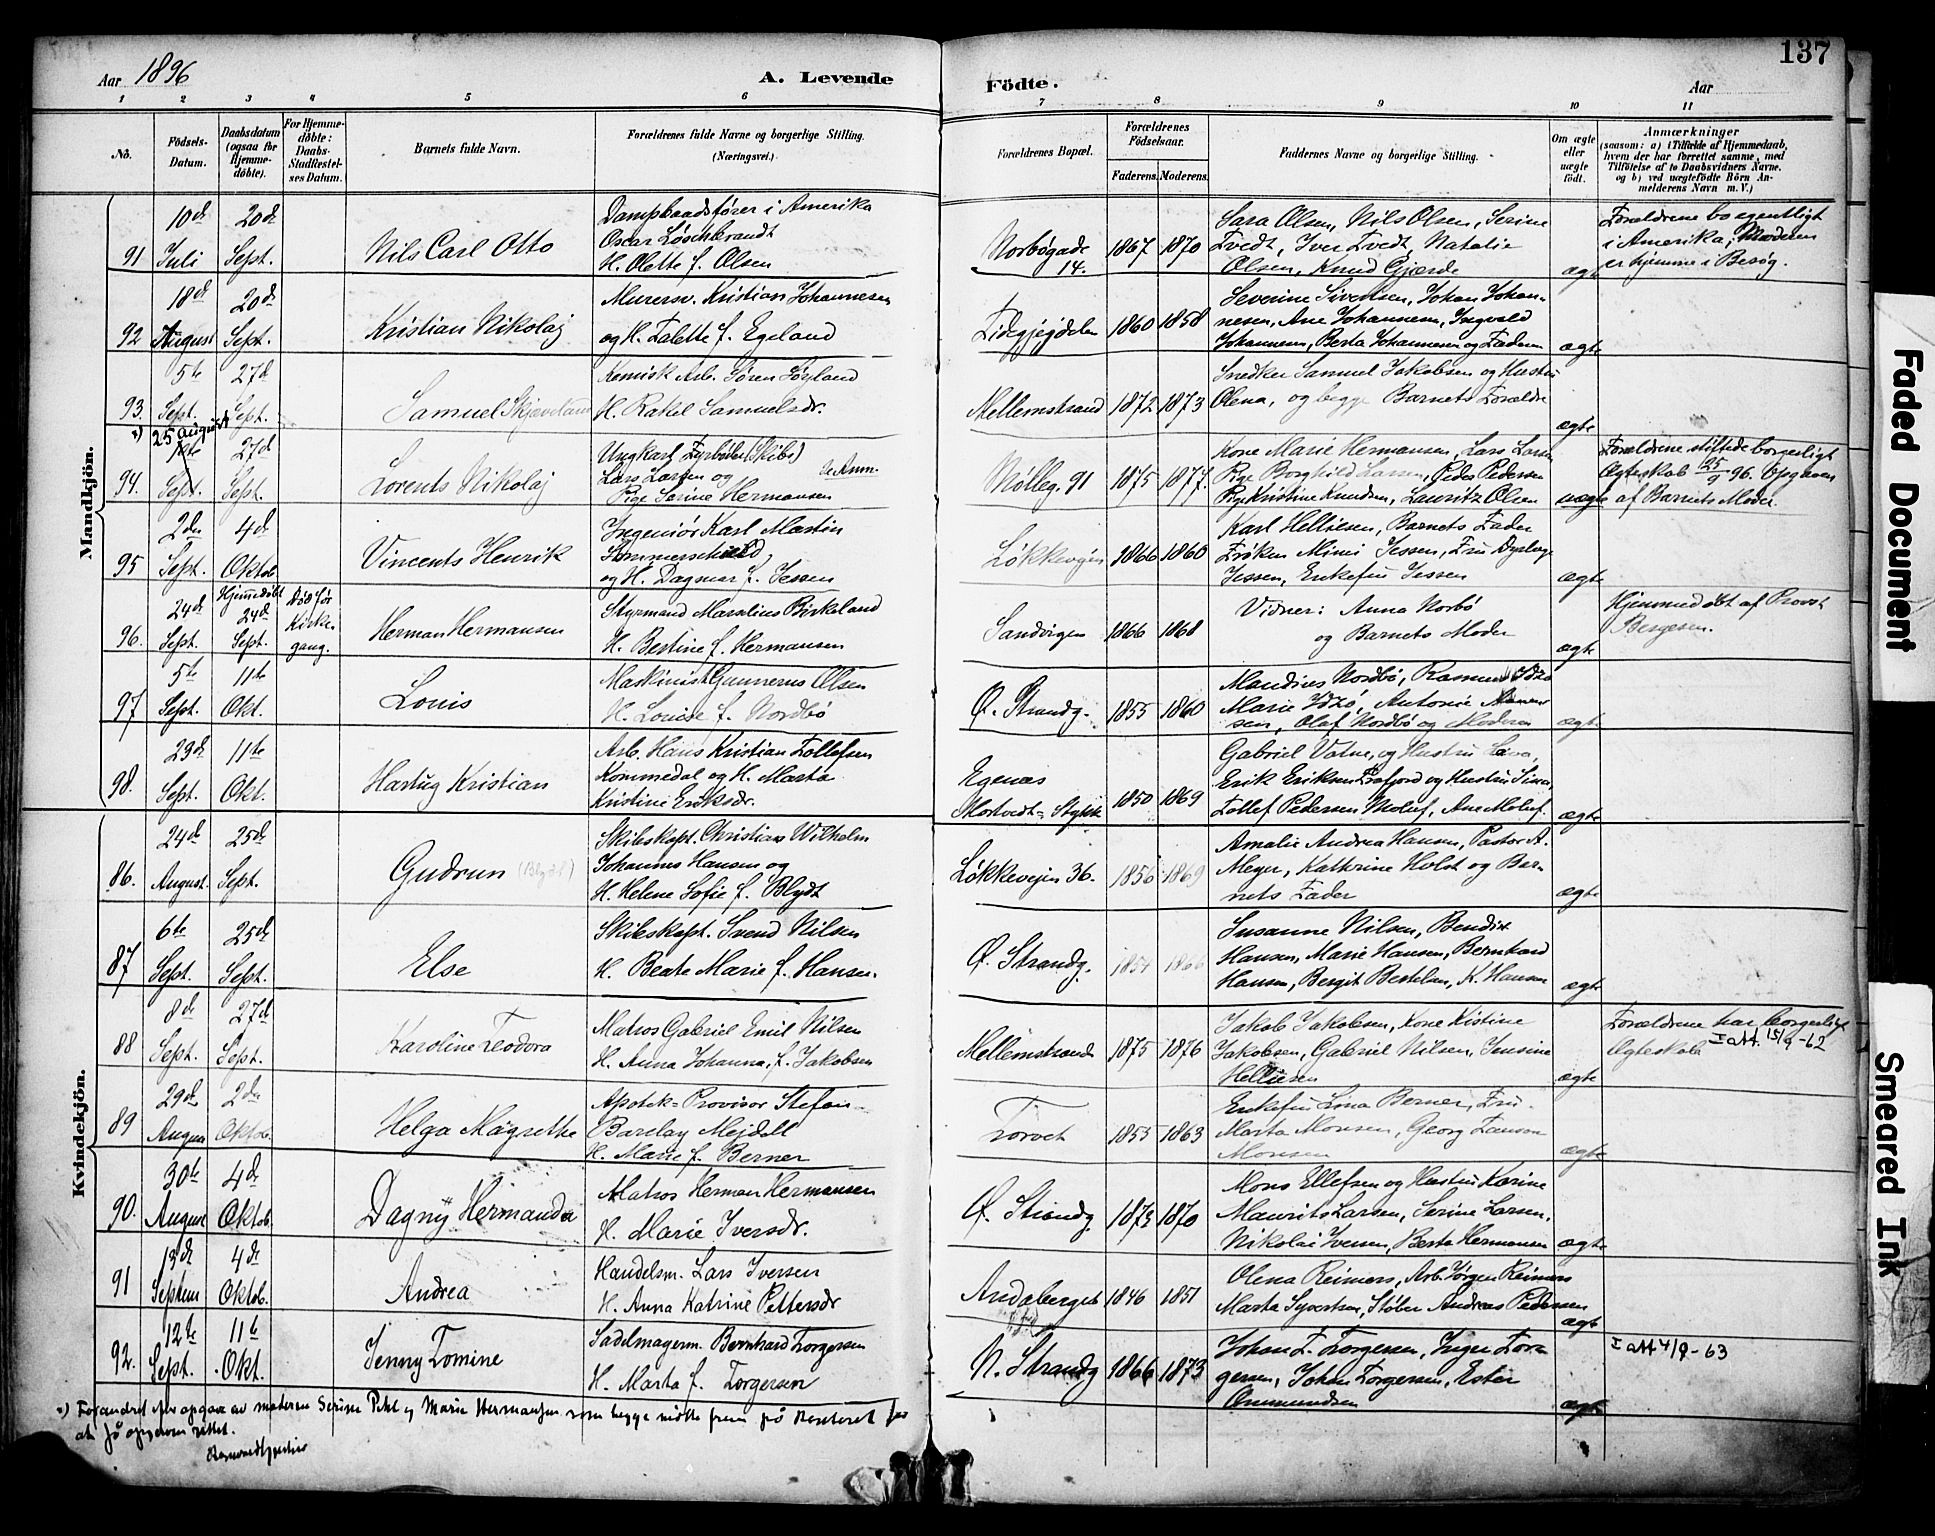 Aar 1896
A. Levende
Födte.
Aar
137
1 2 3 4 5 6 7 8 9 10 11
No.
Födsels-Datum.
Daabsdatum (ogsaa for Hjemme-döbte).
For Hjemme-döbte: Daabs-Stadfestel-ses Datum.
Barnets fulde Navn.
Forældrenes fulde Navne og borgerlige Stilling. (Næringsvei.)
Forældrenes Bopæl.
Forældrenes Födselsaar.
Faderens. Moderens.
Faddernes Navne og borgerlige Stilling.
Om ægte eller uægte födt.
Anmærkninger
(saasom: a) i Tilfælde af Hjemmedaab, hvem der har forrettet samme, med Tilföielse af to Daabsvidners Navne. og b) ved uægtefödte Börn An-melderens Navn m. V.)
Mandkjön.
91 10de Juli 20de Sept. Nils Carl Otto
Dampbaadsfører i Amerika
Oscar Løschbrandt
H. Olette f. Olsen
Norbögade 14. 1867 1870
Sara Olsen, Nils Olsen, Serine
Tvedt, Iver Tvedt, Natalie
Olsen, Knud Gjerde
ægte
Forældrene bo egentligt
i Amerika; Moderen
er hjemme i Besøg.
92 18de August 20de Sept. Kristian Nikolaj
Murersv. Kristian Johannesen
og H. Talette f. Egeland
1860 1858
Severine Sivertsen, Johan Johan-
nesen, Ane Johannesen, Ingvald
Johannesen, Berta Johannesen og Faderen
ægte
93. 5te Sept. 27de Sept. Samuel Skjæveland
Kemisk Arb. Søren Søyland
H. Rakel Samuelsdr.
Mellemstrand 1872 1873
Snedker Samuel Jakobsen og Hustru
Olena, og begge Barnets Forældre
ægte
x) 25 August
94. 1ste Sept. 27de Sept. Lorents Nikolaj
Ungkarl Fyrbøder (Skibs)
Lars Larsen og se Anm.
Pige Serine Hermansen
Mölleg. 91 1875 1877
Kone Marie Hermansen, Lars Larsen
Pige Borghild Larsen, Peder Pedersen
Pige Kristine Knudsen, Lauritz Olsen
uægte
Forældrene stiftede borgerligt
Ægteskab 25/9 96. Opgaven
af Barnets Moder.
95 2den Sept. 4de Oktob. Vincents Henrik
Ingeniør Karl Martin
Sommerschield,
og H. Dagmar f. Jessen
Løkkevejen 1866 1860
Karl Helliesen, Barnets Fader
Frøken Mimi Jessen, Fru
Jessen, Enkefru Jessen
ægte
96. 24de Sept. Hjemmedöbt 24de Sept. Død før Kirke-gang. Herman Hermansen
Styrmand Marselius Birkeland
H. Bertine f. Hermansen
Sandvigen 1866 1868
Vidner: Anna Norbø
og Barnets Moder
ægte
Hjemmedøbt af Provst
Bergesen.
97 5te Sept. 11te Okt. Louis
Maskinist Gunnerus Olsen
H. Louise f. Nordbö
Ø. Strandg. 1855 1860
Mandius Nordbö, Rasmus Idsø
Marie Idsø, Antonie
sen, Olaf Nordbö og Moderen
ægte
98. 23de Sept. 11te Okt. Hartvig Kristian
Arb. Hans Kristian Tollefsen
Kommedal og H. Marta
Kristine Eriksdr.
Egenæs 1850 1869
Gabriel Vatne, og Hustru Lava,
Erik Eriksen Frafjord og Hustru
Tollef Pedersen Moluf, Ane Moluf.
ægte
Kvindekjön.
86. 24de August. 25de Sept. Gudrun (Blydt)
Skibskapt. Christian Wilhelm
Johannes Hansen og
H. Helene Sofie f. Blydt
Løkkevejen 36. 1856 1869
Amalie Andrea Hansen, Pastor A.
Meyer, Kathrine Holst og Bar-
nets Fader
ægte
87 6te Sept. 25de Sept. Else
Skibskapt. Svend Nilsen
H. Beate Marie f. Hansen.
Ø. Strandg. 1854 1866
Susanne Nilsen, Bendix
Hansen, Marie Hansen, Bernhard
Hansen, Bergit Bertelsen, K. Hansen
ægte
88 8de Sept. 27de Sept. Karoline Teodora
Matros Gabriel Emil Nilsen
H. Anna Johanna, f. Jakobsen
Mellemstrand 1875 1876
Jakob Jakobsen, Kone Kistine
Jakobsen, Gabriel Nilsen, Jensine
Helliesen
ægte
Forældrene har borgerligt
Ægteskab I att. 15/9-62
89 29de August 2den Oktob. Helga Margrethe
Apotek-Provisor Stefan
Barclay Mejdell
H. Marie f. Berner
Torvet 1853 1863
Enkefru Lina Berner, Fru
Marta Monsen, Georg
Monsen
ægte
90. 30te August 4de Oktob. Dagny Hermanda
Matros Herman Hermansen
H. Marie Iversdr.
Ø. Strandg 1873 1870
Mons Ellefsen og Hustru Karine
Maurits Larsen, Serine Larsen,
Nikolai Iversen, Berta Hermansen
ægte
91 13de Septem 4de Oktob. Andrea
Handelsm. Lars Iversen
H. Anna Katrine Pettersdr
Andaberget 1846 1851
Olena Reimers, Arb. Jörgen Reimers
Marta Syvertsen, Støber Andreas Pedersen
ægte
92. 12te Sept. 11te Okt. Jenny Tomine
Sadelmagerm. Bernhard Torgersen
H. Marta f. Torgersen
N. Strandg 1866 1873
Johan T. Torgersen, Inger Tor-
gersen, Johan Torgersen, Ester
Ommundsen
ægte
I att 4/9-63
x) Forandret efter opgave av moderen Serine og Marie Hermansen som begge møtte frem på kontoret for
at få opgaven rettet.
Faded Document
Smeared Ink